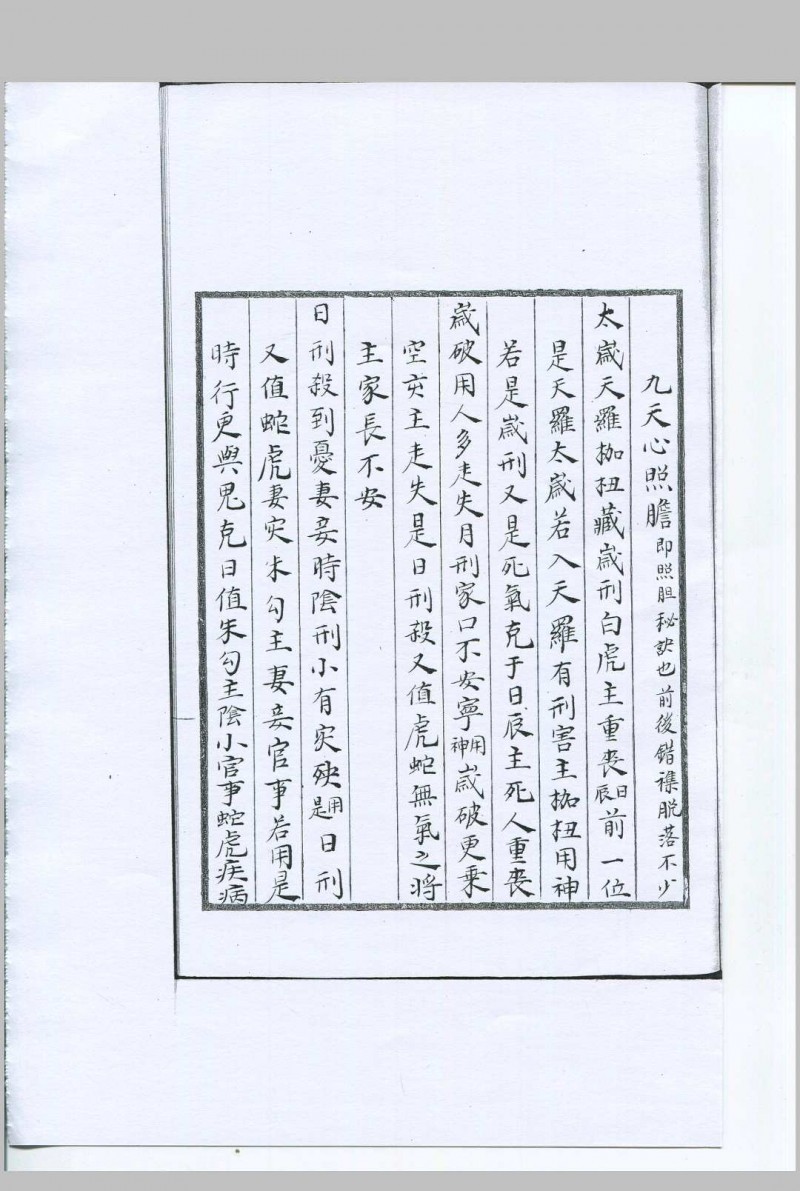 九天心照膽即照胆秘訣也前後錯襍脱落不少
太歲天羅枷杻藏歲刑白虎主重喪日辰前一位
是天羅太歲若入天羅有刑害主枷杻用神
若是歲刑又是死氣克于日辰主死人重喪
歲破用人多走失月刑家口不安寧用神歲破更乗
空亥主走失是日刑殺又值虎蛇無氣之將
主家長不安
日刑殺到憂妻妾時陰刑小有灾殃用是日刑
又值蛇虎妻灾朱勾主妻妾官事若用是
時行更與鬼克日值朱勾主陰小官事蛇虎疾病